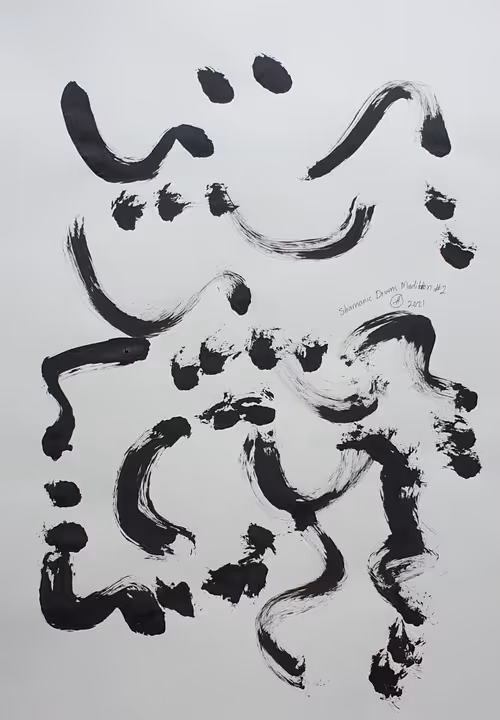 Shamanic Drums Meditation #2
2021